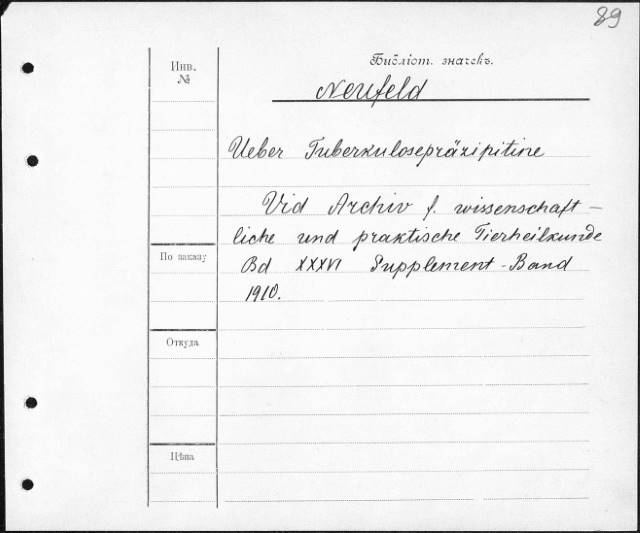 89
Инв.
№
Библіот. значекъ.
Neufeld
Ueber Tuberkulosepräzipitine
Vid Archiv f. wissenschaft-
liche und praktische Tierheilkunde
По заказу
Bd XXXVI Supplement-Band
1910.
Откуда
Цѣна